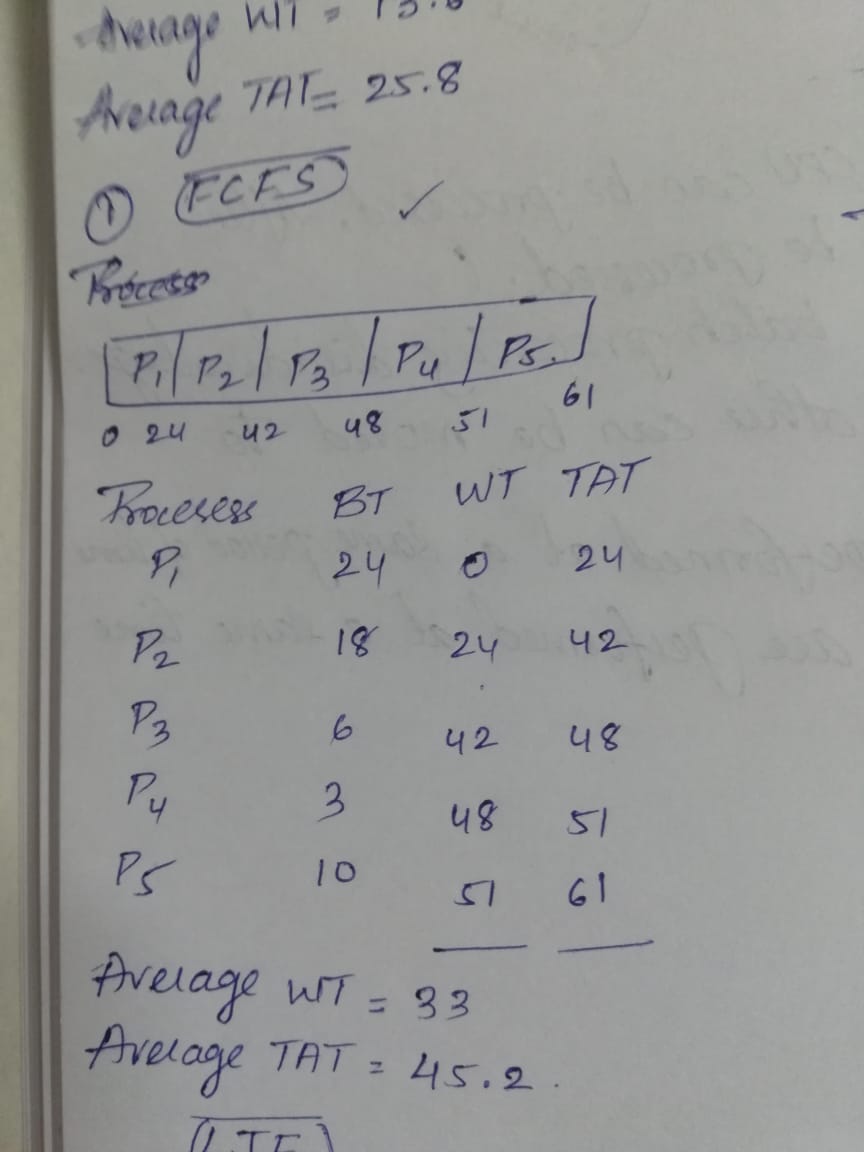 Average WT = 13.6
Average TAT = 25.8
① FCFS ✓
Process
P1 P2 P3 P4 P5.
0 24 42 48 51 61
Processes BT WT TAT
P1 24 0 24
P2 18 24 42
P3 6 42 48
P4 3 48 51
P5 10 51 61
Average WT = 33
Average TAT = 45.2.